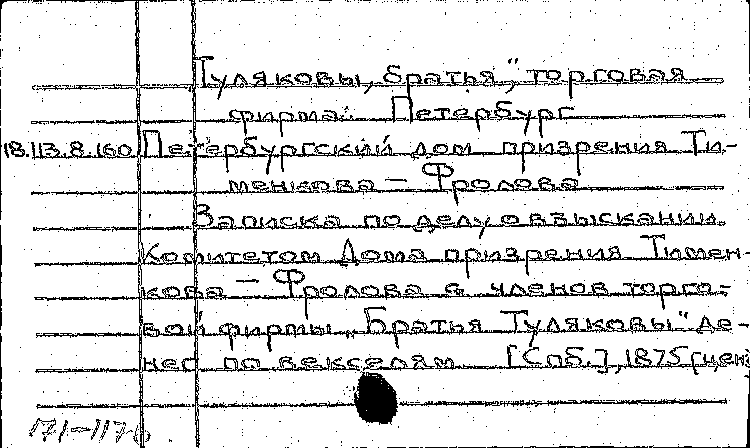 Туляковы, братья", торговая
фирма. Петербург
18.113.8.160 Петербургский дом призрения Ти-
менкова - Фролова
Записка по делу о взыскании
Комитетом Дома призрения Тимен-
кова - Фролова с членов торго-
вой фирмы „Братья Туляковы" де-
нег по векселям [Спб.], 1875 (ценз
171-1176